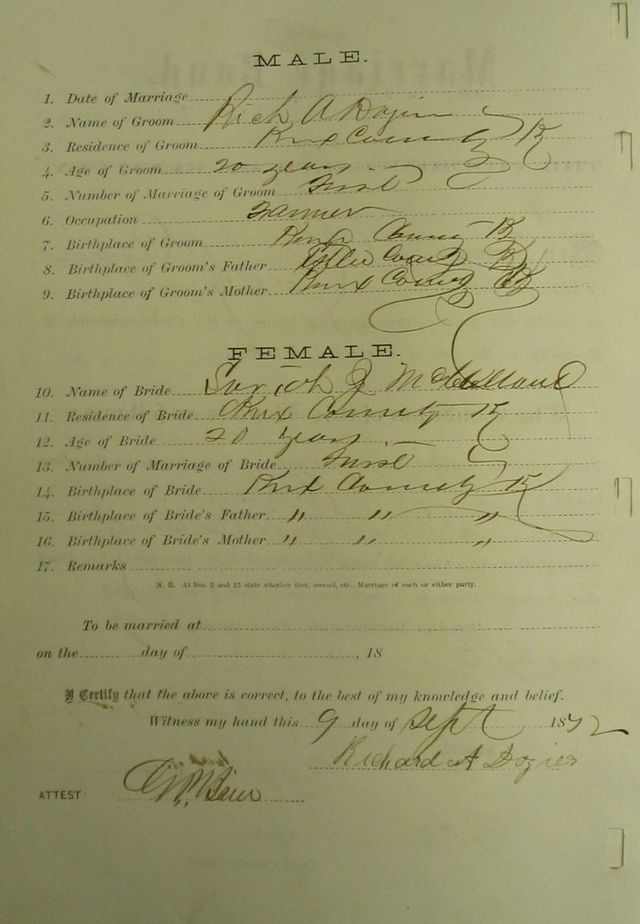 MALE.
1. Date of Marriage
2. Name of Groom Rich A Dozier
3. Residence of Groom Knox County K
4. Age of Groom 20 years
5. Number of Marriage of Groom First
6. Occupation Farmer
7. Birthplace of Groom Knox County K
8. Birthplace of Groom's Father County K
9. Birthplace of Groom's Mother Knox County Ky
FEMALE.
10. Name of Bride J
11. Residence of Bride Knox County K
12. Age of Bride 20 years
13. Number of Marriage of Bride First
14. Birthplace of Bride Knox County K
15. Birthplace of Bride's Father " " "
16. Birthplace of Bride's Mother " " "
17. Remarks
N. B. At Nos. 5 and 13 state whether first, second, etc., Marriage of each or either party.
To be married at
on the day of , 18
I Certify that the above is correct, to the best of my knowledge and belief.
Witness my hand this 9 day of Sept 1872
Richard A Dozier
ATTEST